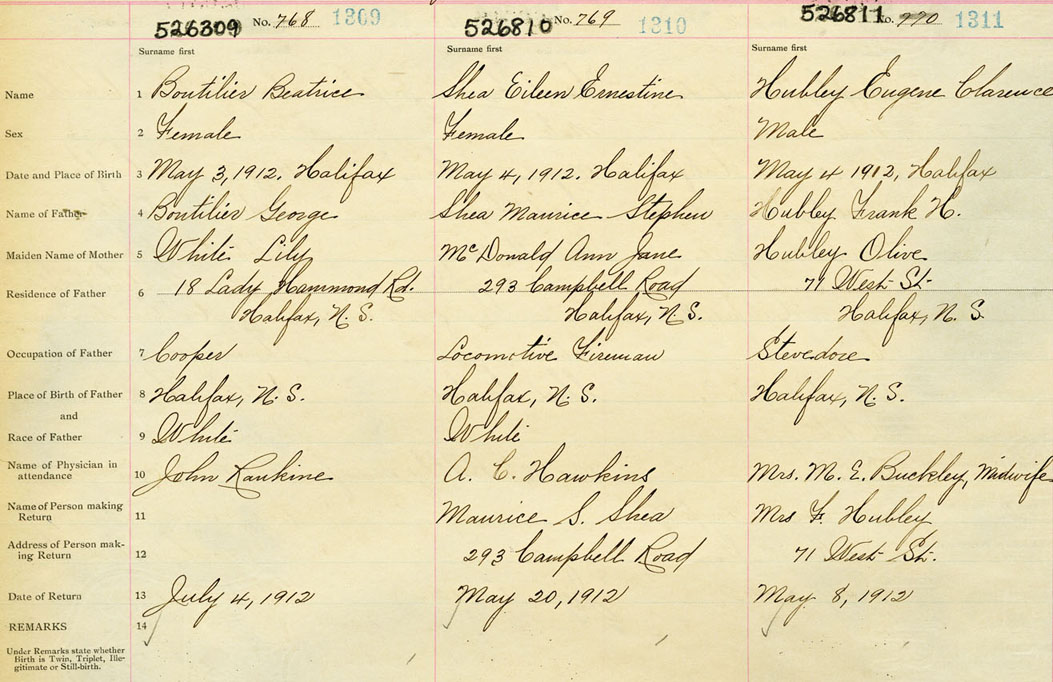 526309 No. 768 1309 526810 No. 769 1310 526811 No. 770 1311
Surname first Surname first Surname first
Name 1 Boutilier Beatrice Shea Eileen Ernestine Hubley Eugene Clarence
Sex 2 Female Female Male
Date and Place of Birth 3 May 3, 1912. Halifax May 4, 1912. Halifax May 4 1912, Halifax
Name of Father 4 Boutilier George Shea Maurice Stephen Hubley Frank H.
Maiden Name of Mother 5 White Lily McDonald Ann Jane Hubley Olive
Residence of Father 6 18 Lady Hammond Rd. 293 Campbell Road 71 West St.
Halifax, N.S. Halifax, N.S. Halifax, N.S.
Occupation of Father 7 Cooper Locomotive Fireman Stevedore
Place of Birth of Father 8 Halifax, N.S. Halifax, N.S. Halifax, N.S.
and
Race of Father 9 White White
Name of Physician in
attendance 10 John Rankine A. C. Hawkins Mrs. M. E. Buckley, Midwife
Name of Person making
Return 11 Maurice S. Shea Mrs F. Hubley
Address of Person mak-
ing Return 12 293 Campbell Road 71 West St.
Date of Return 13 July 4, 1912 May 20, 1912 May 8, 1912
REMARKS 14
Under Remarks state whether
Birth is Twin, Triplet, Ille-
gitimate or Still-birth.